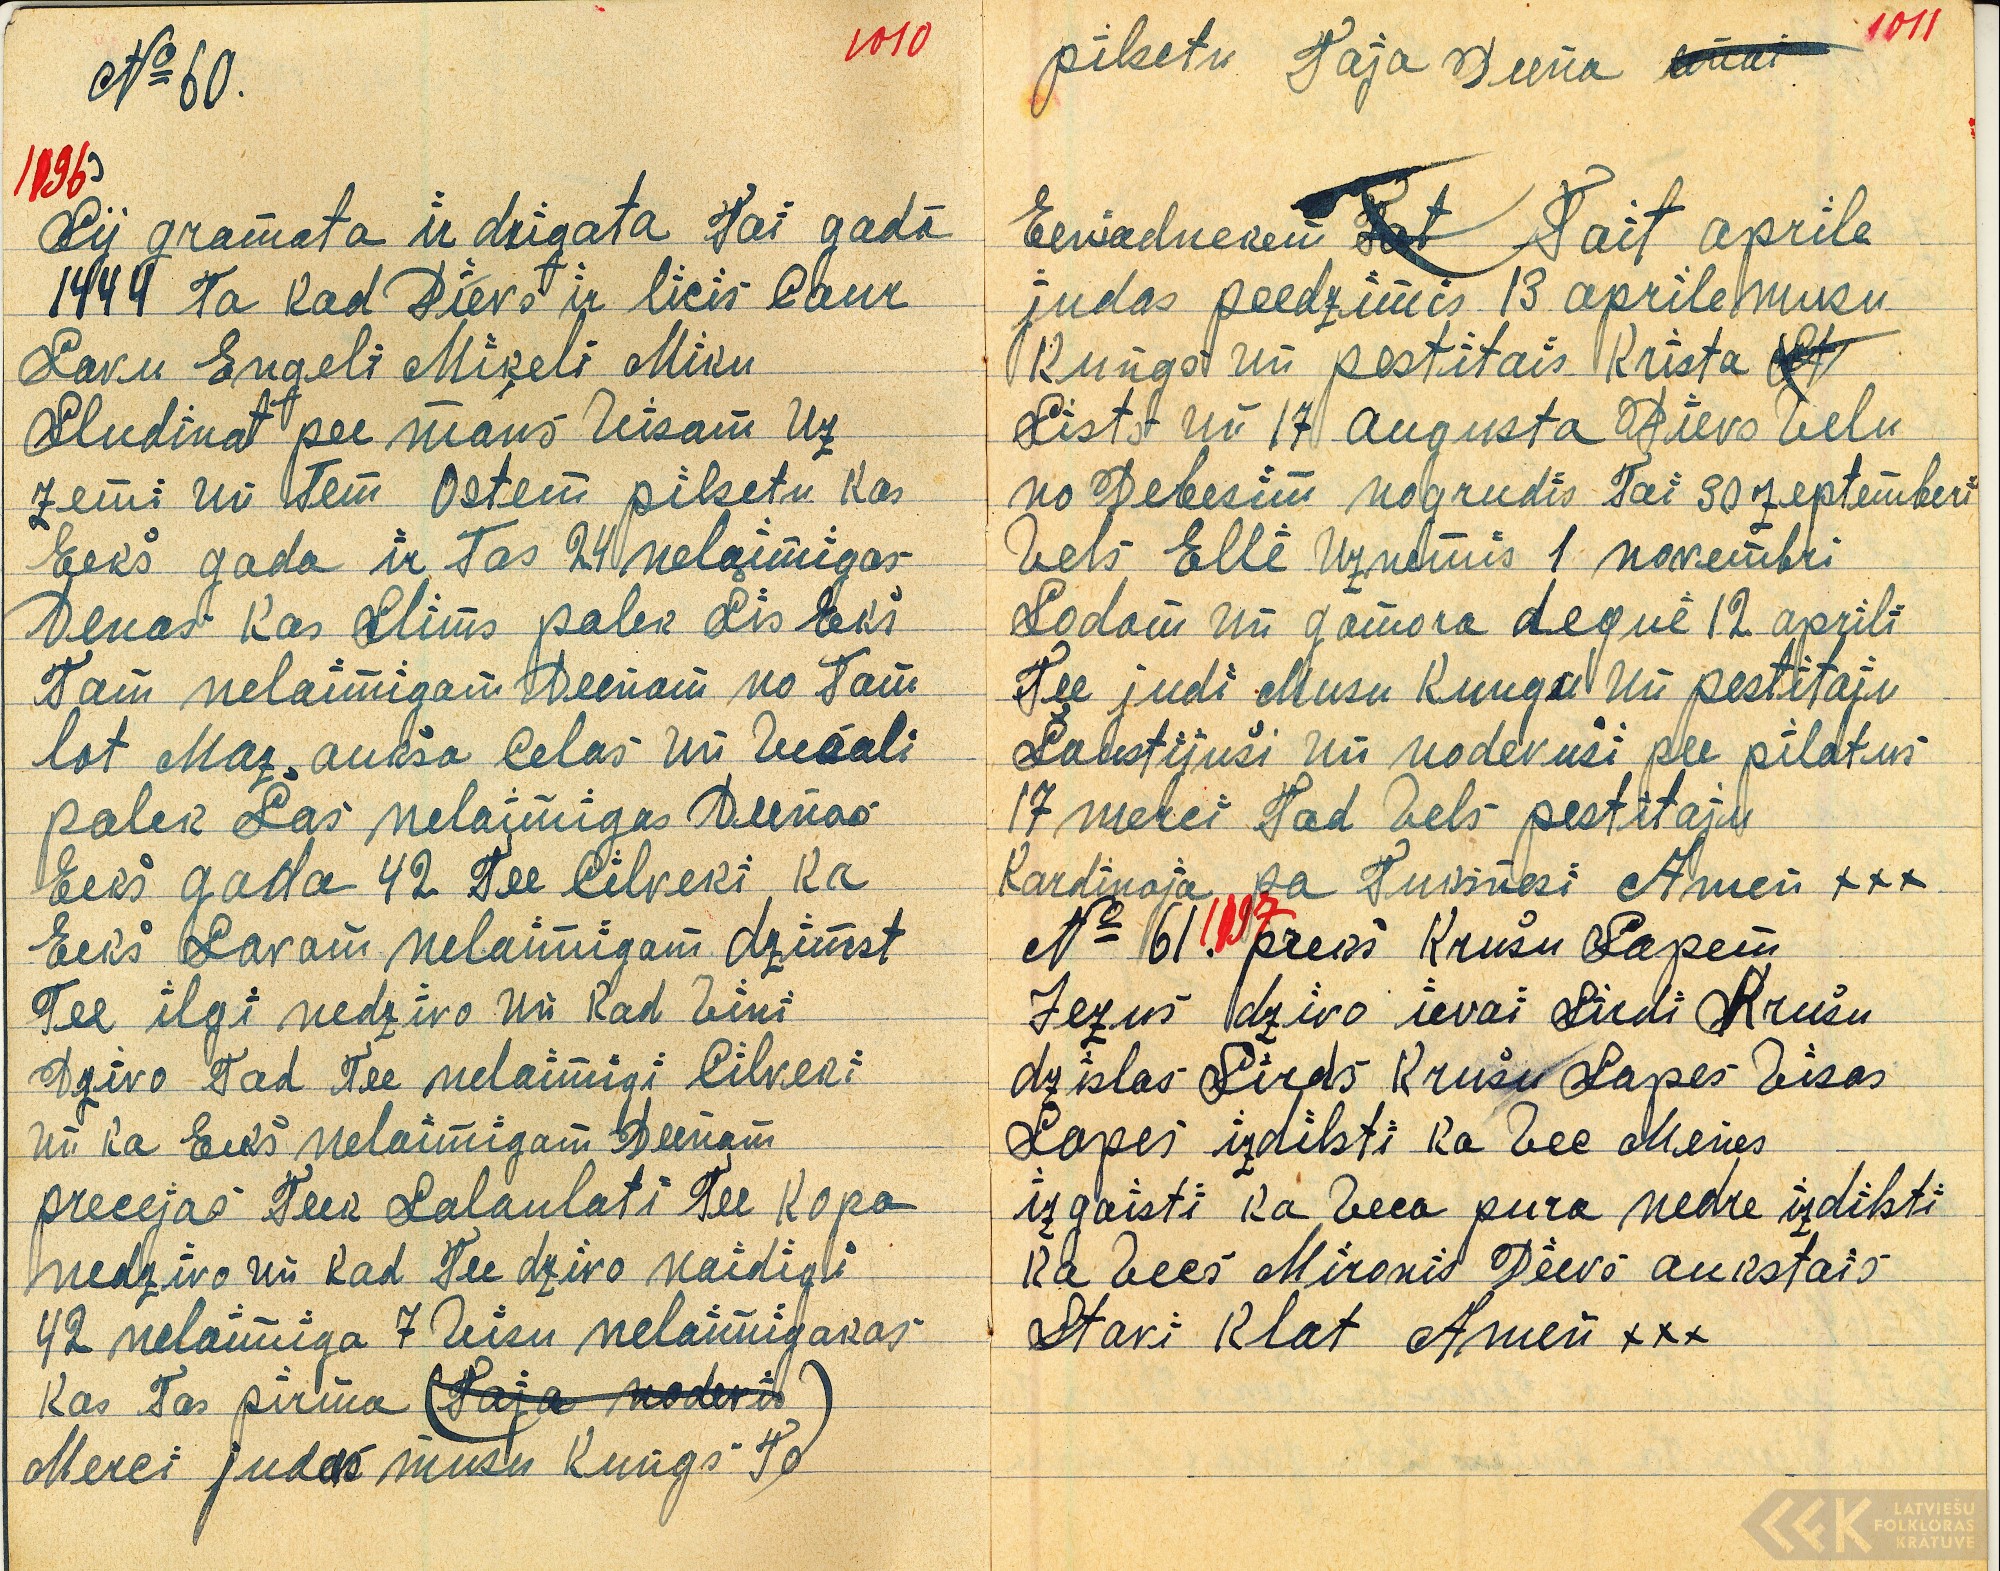 1010
№ 60.
1096
Sij gramata ir drigata Tai gada
1444 Ta kad Dievs ir licis Caur
Savu Engeli Mikeli Miku
Sludinat pee mans Visam Uz
zemi un Tem Ostem pilsetu kas
Eekš gada ir Tas 24 nelaimigas
Denas kas Slims palek Sis Eekš
Tam nelaimigam Deenam no Tam
lot Maz. aukša Celas un Veseli
palek Šas nelaimigas Deenas
Eekš gada 42 Tee Cilveki Ka
Eekš Savam nelaimigam dzimst
Tee ilgi nedzivo un kad Vini
Dzivo Tad Tee nelaimigi Cilveki
un ka Eekš nelaimigam Deenam
precejas Teek Salaulati Tee Kopa
nedzivo un kad Tee dzivo naidigi
42 nelaimiga 7 Visu nelaimigakas
kas Tas pirma (Taja nodevis)
Merci judas musu kungs To
1011
pilsetu Taja Deena
Eewadnekem Tait aprile
judas peedzimis 13 aprile musu
Kungs un pestitais Krista
Sists un 17 augusta Dievs Velu
no Debesim nogrudis Tai 30 zeptemberi
Vels Elle Uznemis 1 novembri
Sodom un gamora degue 12 aprili
Tee judi Musu kungu un pestitaju
Šaustijuši un nodevuši pee pilatus
17 merci Tad Vels pestitaju
Kardinaja pa Tuksnesi Amen xxx
№ 61. 1097 preks Krušu Sapem
Jezus dzivo ievai Sirdi Krušu
dzislas Sirds Krušu Sapes Visas
Sapes izdilsti ka Vec Menes
izgaisti ka Veca pura nedre izdilsti
ka Vecs Mironis Dievs aukstais
Stavi Klat Amen xxx
LATVIEŠU
FOLKLORAS
KRATUVE